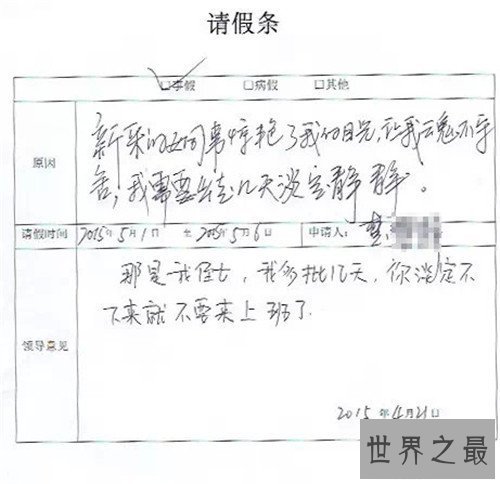 请假条
□事假 □病假 □其他
原因
新来的女同事惊艳了我的目光,让我魂不守
舍,我需要出去几天淡定静静。
请假时间 2015年5月1日 至 2015年5月6日 申请人:
那是我侄女,我多批几天,你淡定不
下来就不要来上班了.
领导意见
2015年4月21日
世界之最